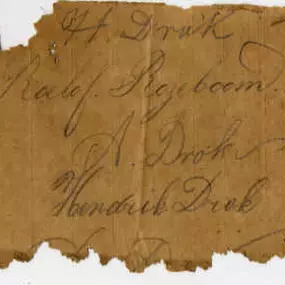 H. Drok
Roelof. Rozeboom.
A. Drok
Hendrik Drok